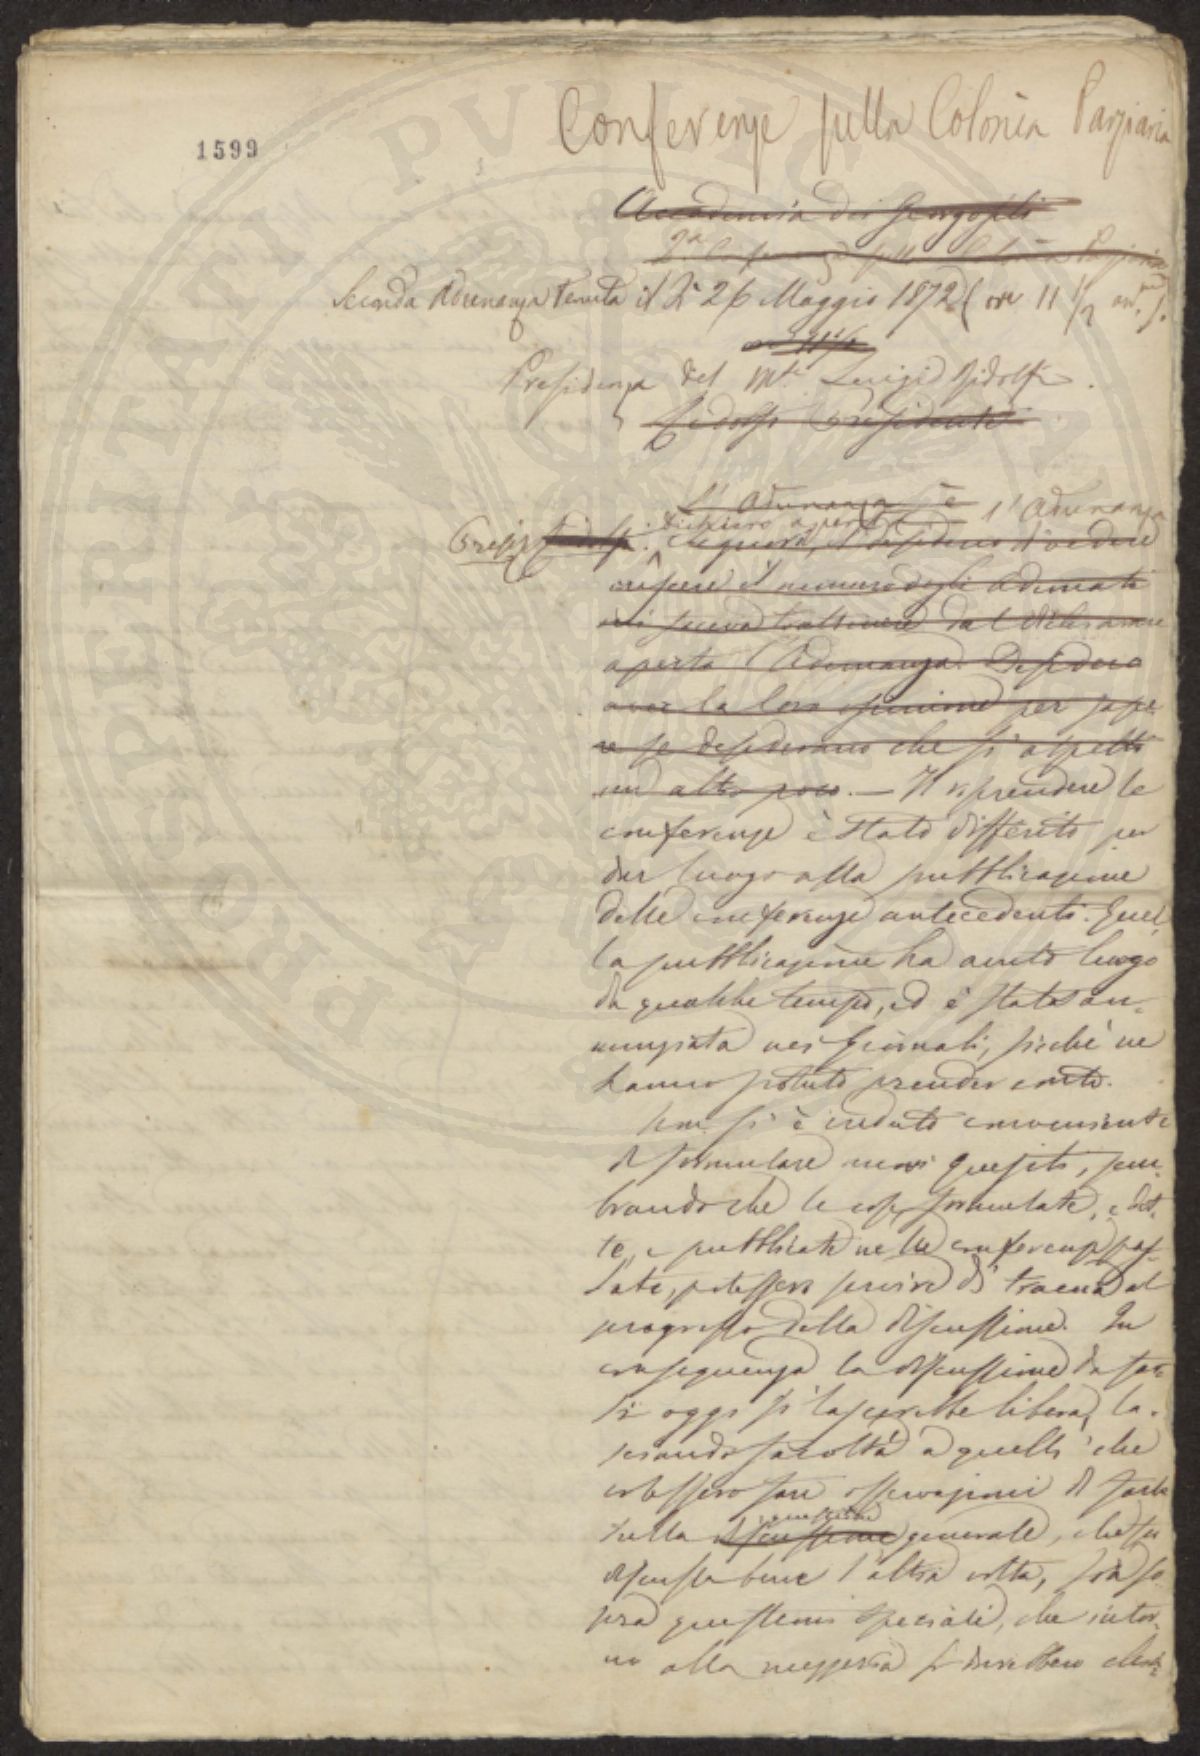 Conferenze sulla Colonia Parziaria
1599
Accademia dei Georgofili
2a Conferenza sulla Colonia Parziaria
Seconda Adunanza tenuta il dì 26 Maggio 1872 (ore 11 1/2 ant.
Presidenza del Mse Luigi Ridolfi.
Ridolfi Presidente
L'Adunanza è
dichiaro aperta l'Adunanza
Presid. Ridolfi. Signori, il desiderio di vedere
crescere il numero degli adunati
mi faceva trattenere dal dichiarare
aperta l'Adunanza. Desidero
aver la loro opinione per sape-
re se desiderano che si aspetti
un altro poco. — Il riprendere le
conferenze è stato differito per
dar luogo alla pubblicazione
delle conferenze antecedenti. Quel-
la pubblicazione ha avuto luogo
da qualche tempo, ed è stata an-
nunziata nei Giornali, sicché ne
hanno potuto prender conto.
Non si è creduto conveniente
di formulare nuovi quesiti, sem-
brando che le cose formulate, e det-
te, e pubblicate nelle conferenze pas-
sate, potessero servire di traccia al
progresso della discussione. In
conseguenza la discussione da far-
si oggi si lascerebbe libera, la-
sciando facoltà a quelli che
volessero fare osservazioni di farle
sulla discussione questione generale, che fu
discussa bene l'altra volta, sia so-
pra questioni speciali, che intor-
no alla mezzeria si darebbero